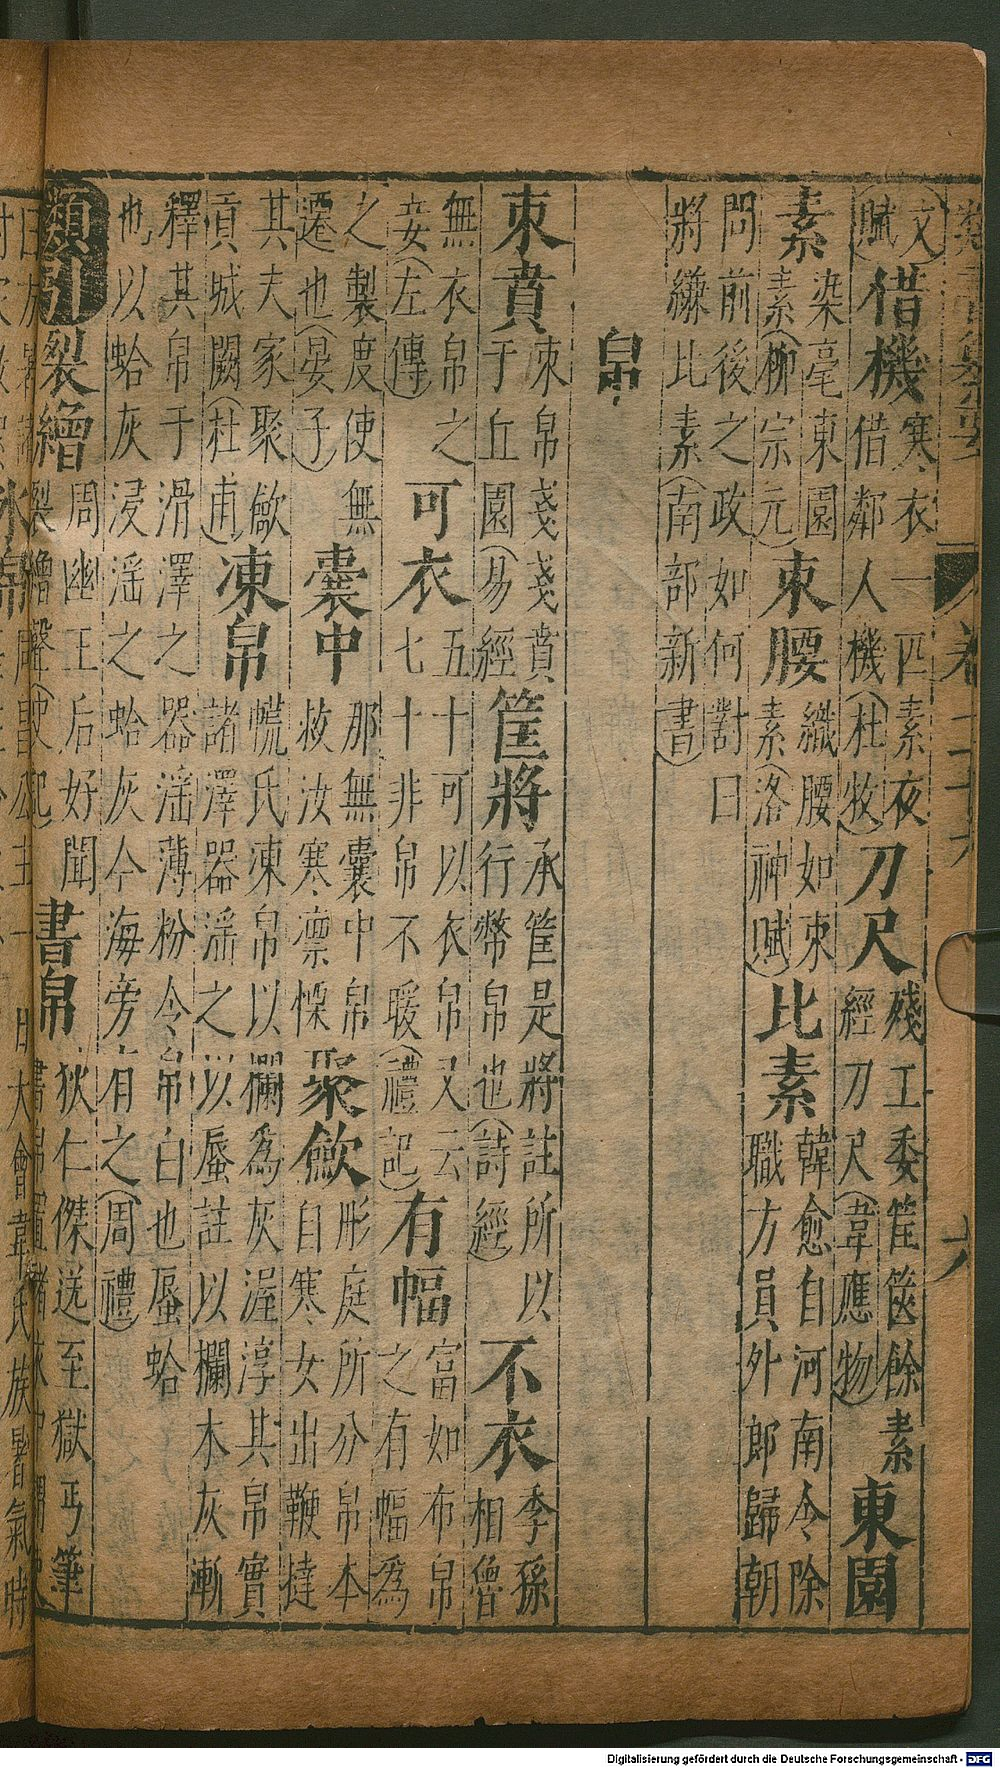 類書纂要 卷二十六 六
文賦)借機寒衣一匹素夜借鄰人機(杜牧)刀尺殘工委筐篋餘素經刀尺(韋應物)東園
素染毫東園素(柳宗元)束腰織腰如束素(洛神賦)比素韓愈自河南令除職方員外郎歸朝
問前後之政如何對曰將縑比素(南部新書)
帛
束賁束帛戔戔賁于丘園(易經)筐將承筐是將註所以行幣帛也(詩經)不衣季孫相魯
無衣帛之妾(左傳)可衣五十可以衣帛又云七十非帛不暖(禮記)有幅富如布帛之有幅為
之製度使無遷也(晏子)囊中那無囊中帛救汝寒凛慄聚歛彤庭所分帛本自寒女出鞭撻
其夫家聚歛貢城闕(杜甫)湅帛㡛氏湅帛以欄為灰渥淳其帛實諸澤器滛之以蜃註以欄木灰漸
釋其帛于滑澤之器滛薄粉令帛白也蜃蛤也以蛤灰浸滛之蛤灰今海旁有之(周禮)
類引裂繒周幽王后好聞裂繒聲(史記)書帛狄仁傑送至獄丐筆書帛置褚衣中
甘大會韋氏族暑氣時
Digitalisierung gefördert durch die Deutsche Forschungsgemeinschaft - DFG